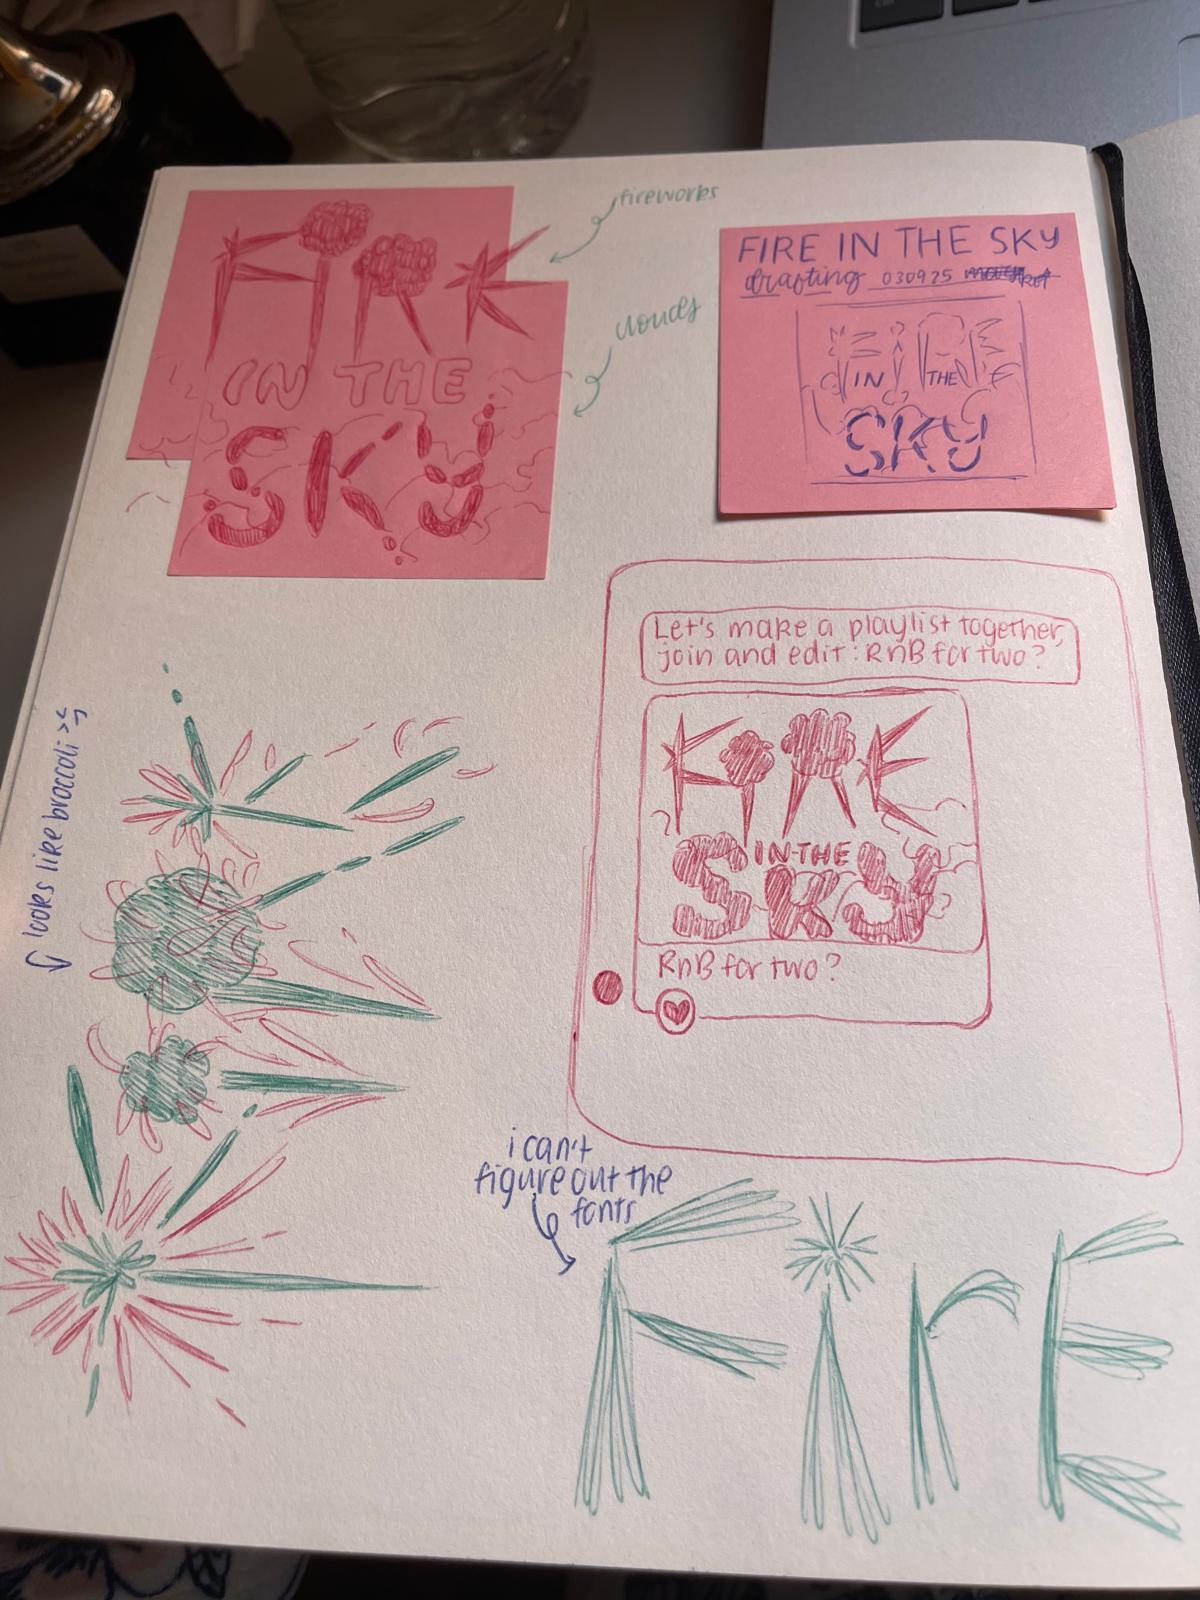 FIRE
IN THE
SKY
fireworks
clouds
FIRE IN THE SKY
drafting 030925
FIRE
IN THE
SKY
Let's make a playlist together,
join and edit: RnB for two?
FIRE
IN THE
SKY
RnB for two?
looks like broccoli ><
i can't
figure out the
fonts
FirE